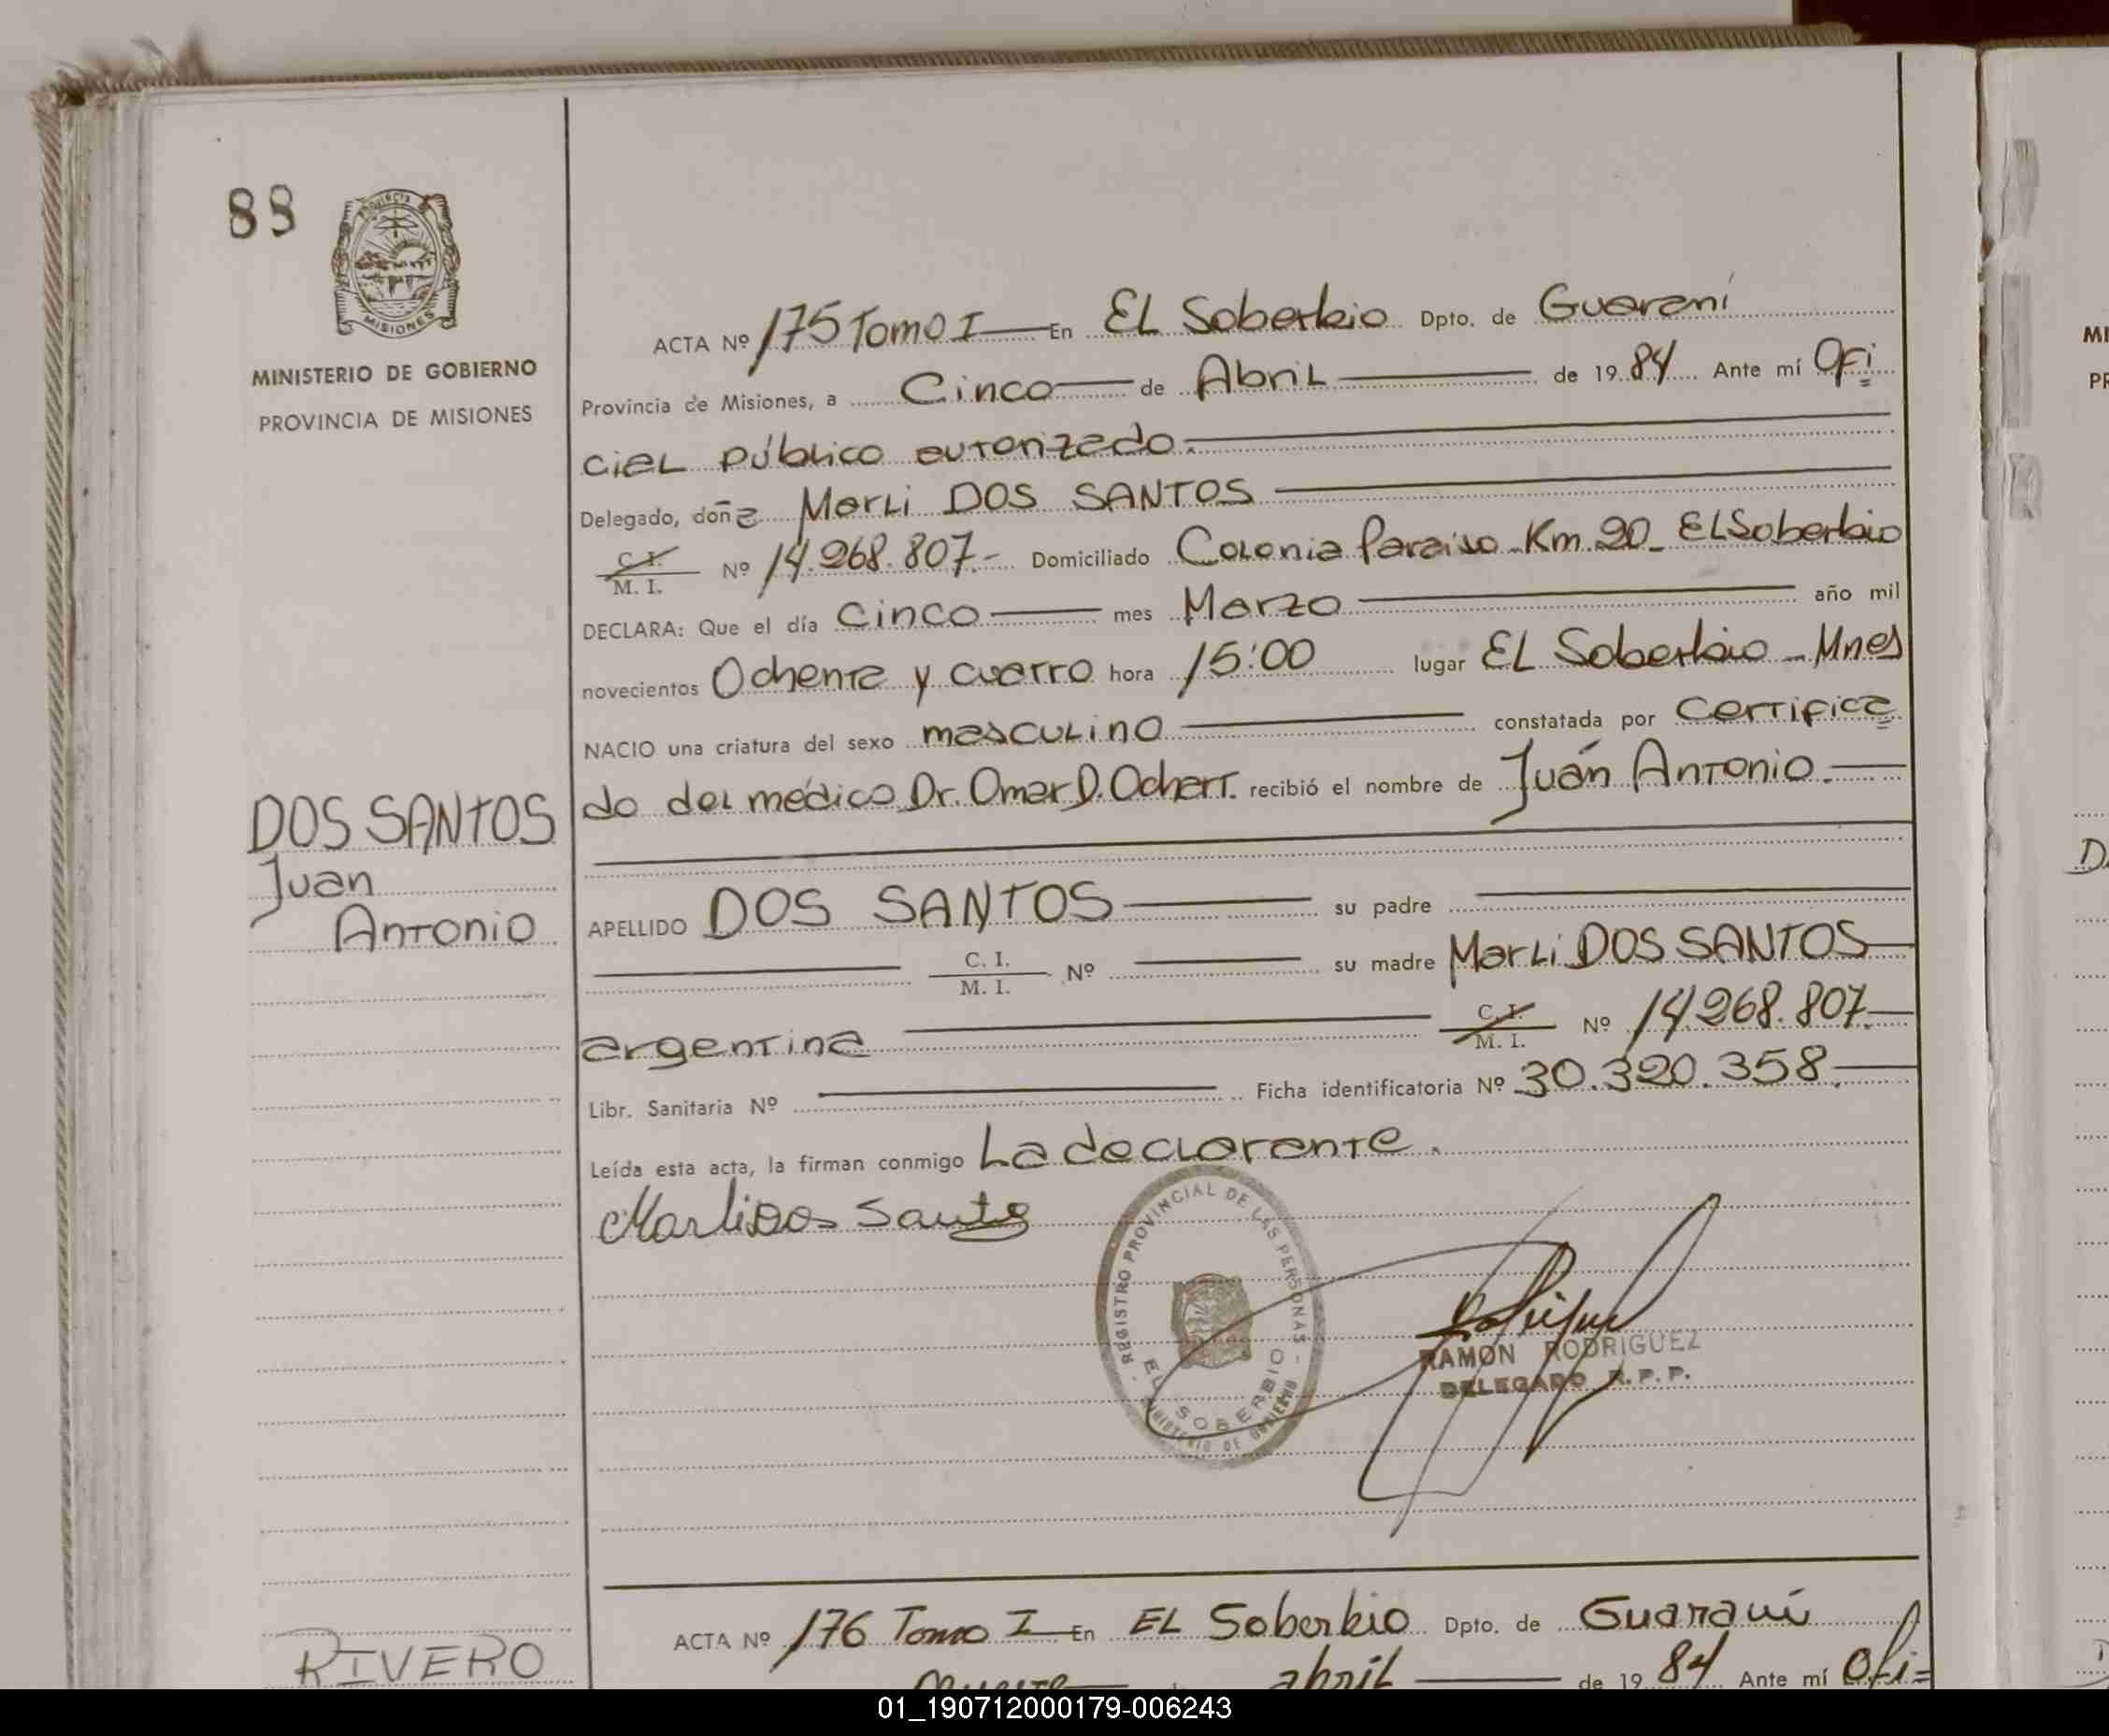 88
PROVINCIA
MISIONES
MINISTERIO DE GOBIERNO
PROVINCIA DE MISIONES
ACTA Nº 175 Tomo I En EL Soberbio Dpto. de Guaraní
Provincia de Misiones, a Cinco de Abril de 1984 Ante mí Ofi
cial público autorizado.
Delegado, doña Marli DOS SANTOS
C. I.
M. I. Nº 14.268.807.- Domiciliado Colonia Paraiso - Km 20 - EL Soberbio
DECLARA: Que el día Cinco mes Marzo año mil
novecientos Ochenta y cuatro hora 15:00 lugar EL Soberbio - Mnes
NACIO una criatura del sexo masculino constatada por Certifica
do del médico Dr. Omar D. Ochert. recibió el nombre de Juán Antonio.
DOS SANTOS
Juan
Antonio
APELLIDO DOS SANTOS su padre
C. I.
M. I. Nº su madre Marli DOS SANTOS
argentina C. I.
M. I. Nº 14.268.807.
Libr. Sanitaria Nº Ficha identificatoria Nº 30.320.358.
Leída esta acta, la firman conmigo La declarante.
Marli Dos Santos
REGISTRO PROVINCIAL DE LAS PERSONAS
EL SOBERBIO
MINISTERIO DE GOBIERNO
RAMON RODRIGUEZ
DELEGADO R.P.P.
ACTA Nº 176 Tomo I En EL Soberbio Dpto. de Guaraní
RIVERO
abril de 1984 Ante mí Ofi=
01_190712000179-006243